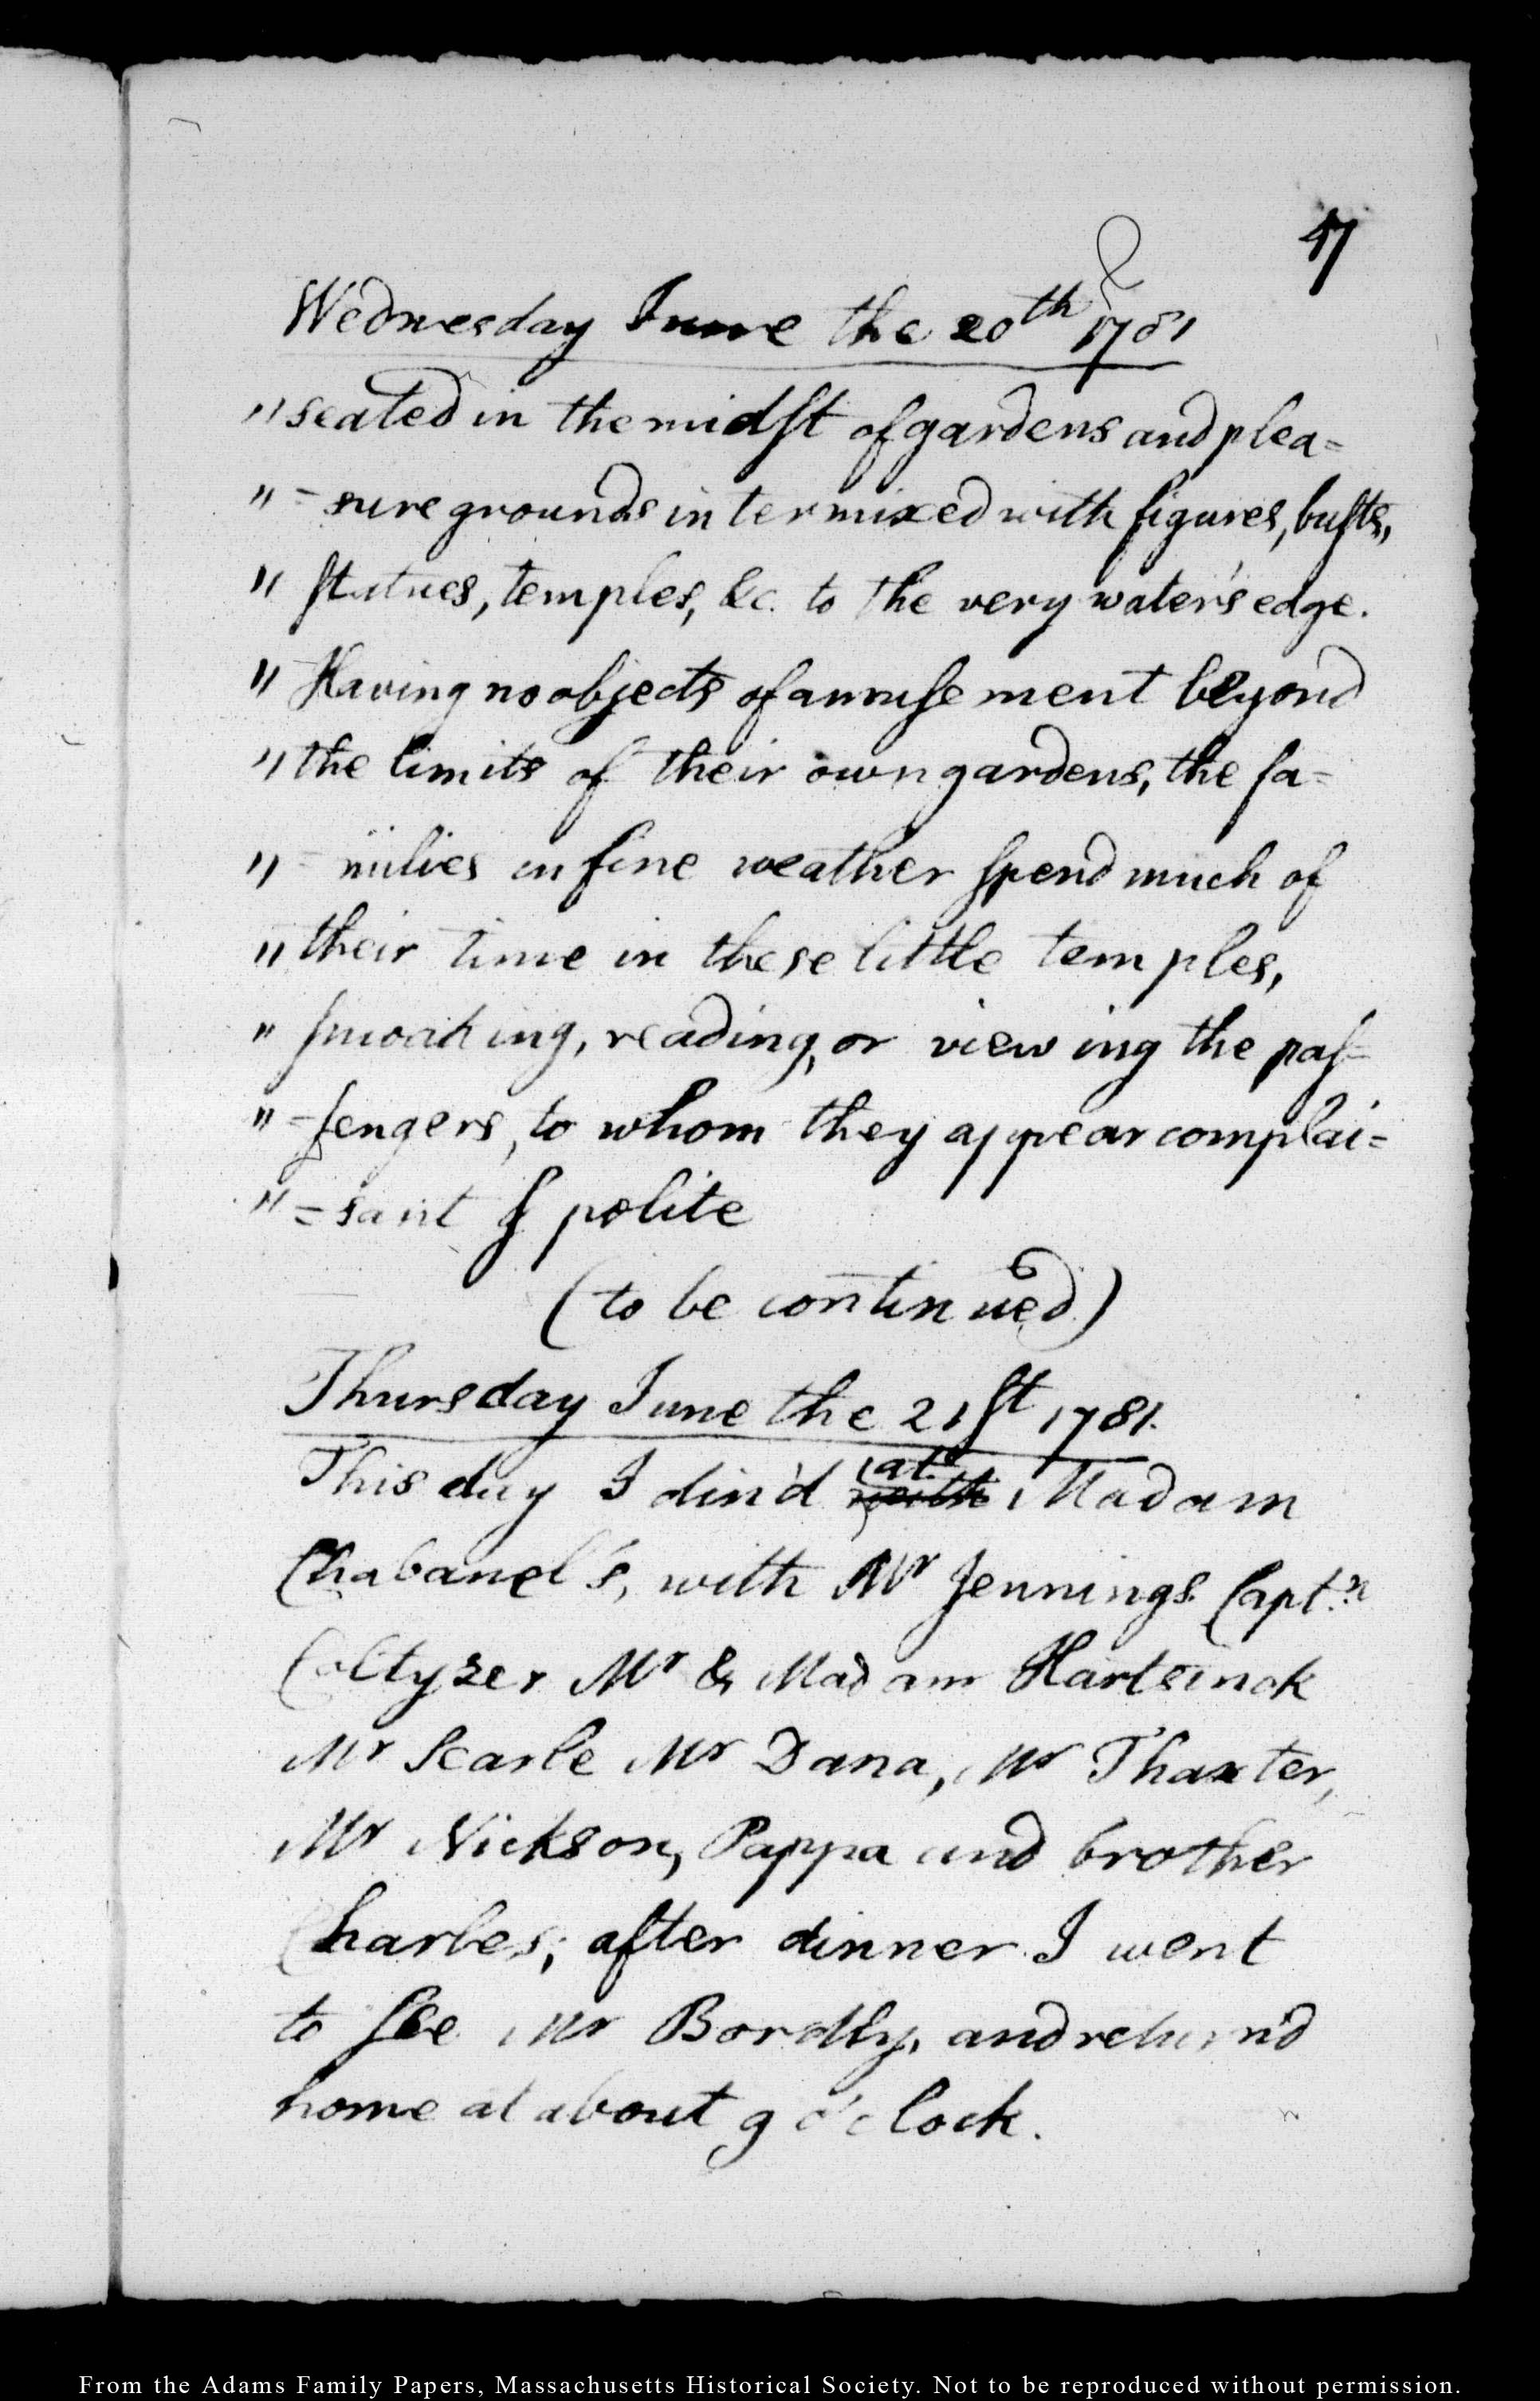 47
Wednesday June the 20th 1781
"seated in the midst of gardens and plea=
"=sure grounds intermixed with figures, busts,
"statues, temples, &c. to the very water's edge.
"Having no objects of amusement beyond
"the limits of their own gardens, the fa=
"=milies in fine weather spend much of
"their time in these little temples,
"smoaking, reading, or viewing the pas=
"=sengers, to whom they appear complai=
"=sant & polite
(to be continued)
Thursday June the 21st 1781.
at
This day I din'd with Madam
Chabanel's, with Mr Jennings Capt.n
Coltyzer Mr & Madam Hartsinck
Mr Searle Mr Dana, Mr Thaxter,
Mr Nickson, Pappa and brother
Charles; after dinner I went
to see Mr Bordly, and return'd
home at about 9 o'clock.
From the Adams Family Papers, Massachusetts Historical Society. Not to be reproduced without permission.